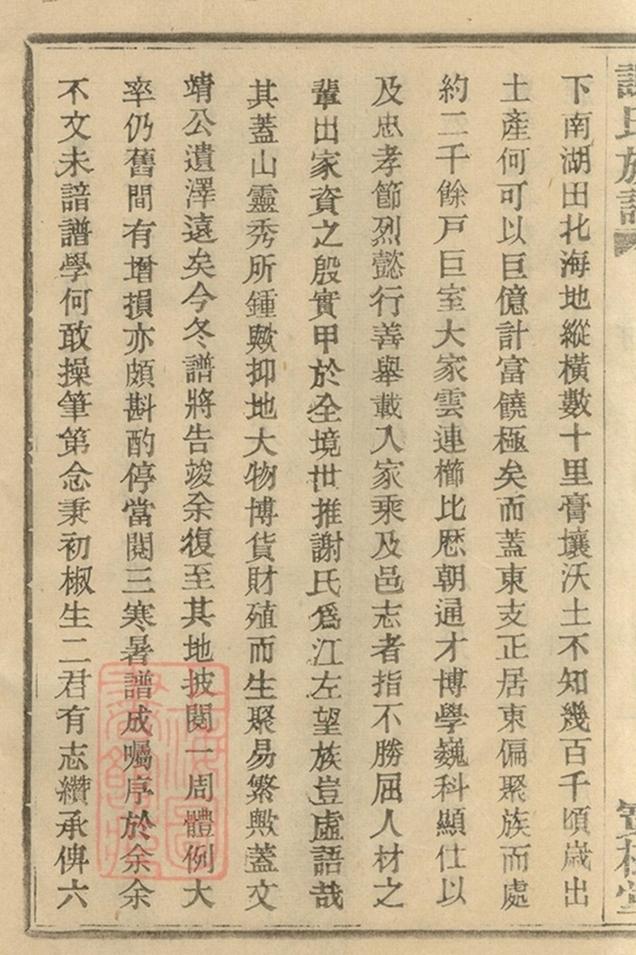 謝氏族譜
寶樹堂
下南湖田北海地縱橫數十里膏壤沃土不知幾百千頃歲出
土產何可以巨億計富饒極矣而蓋東支正居東偏聚族而處
約二千餘戶巨室大家雲連櫛比歷朝通才博學巍科顯仕以
及忠孝節烈懿行善舉載入家乘及邑志者指不勝屈人材之
輩出家資之殷實甲於全境世推謝氏爲江左望族豈虛語哉
其蓋山靈秀所鍾歟抑地大物博貨財殖而生聚易繁歟蓋文
靖公遺澤遠矣今冬譜將告竣余復至其地披閱一周體例大
率仍舊間有增損亦頗斟酌停當閱三寒暑譜成囑序於余余
不文未諳譜學何敢操筆第念秉初椒生二君有志纘承俾六